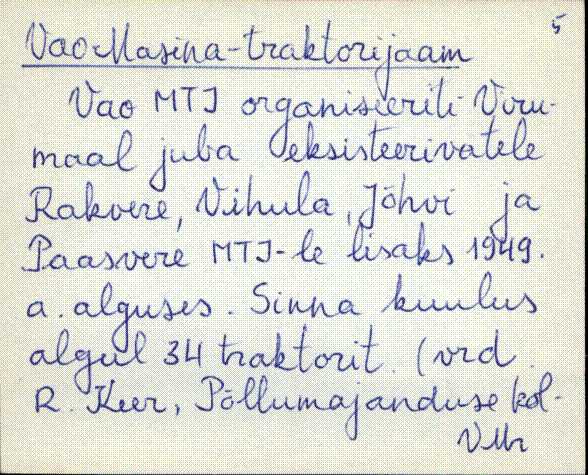 5
Vao Masina-traktorijaam
Vao MTJ organiseeriti Viru-
maal juba eksisteerivatele
Rakvere, Vihula, Jõhvi ja
Paasvere MTJ-le lisaks 1949.
a. alguses. Sinna kuulus
algul 34 traktorit. (vrd
R. Keer, Põllumajanduse kol-